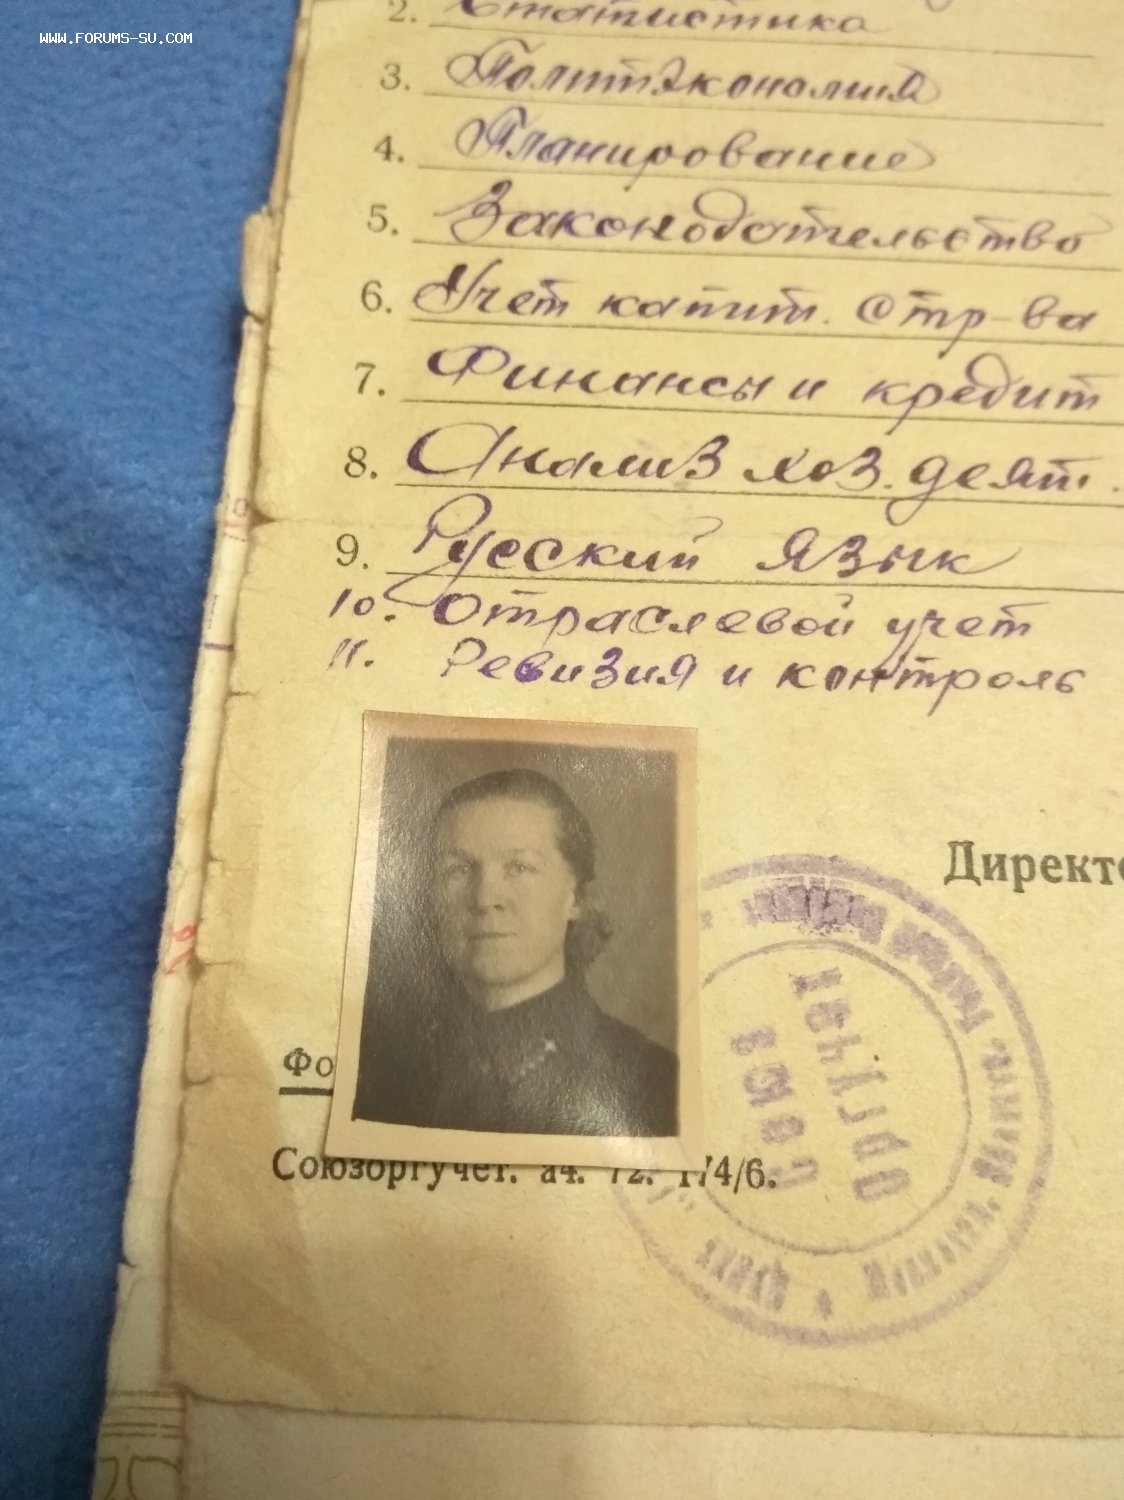 WWW.FORUMS-SU.COM
2. Статистика
3. Политэкономия
4. Планирование
5. Законодательство
6. Учет капит. стр-ва
7. Финансы и кредит
8. Анализ хоз. деят.
9. Русский язык
10. Отраслевой учет
11. Ревизия и контроль
Директо
Фо
Союзоргучет. а4. 72. 174/6.